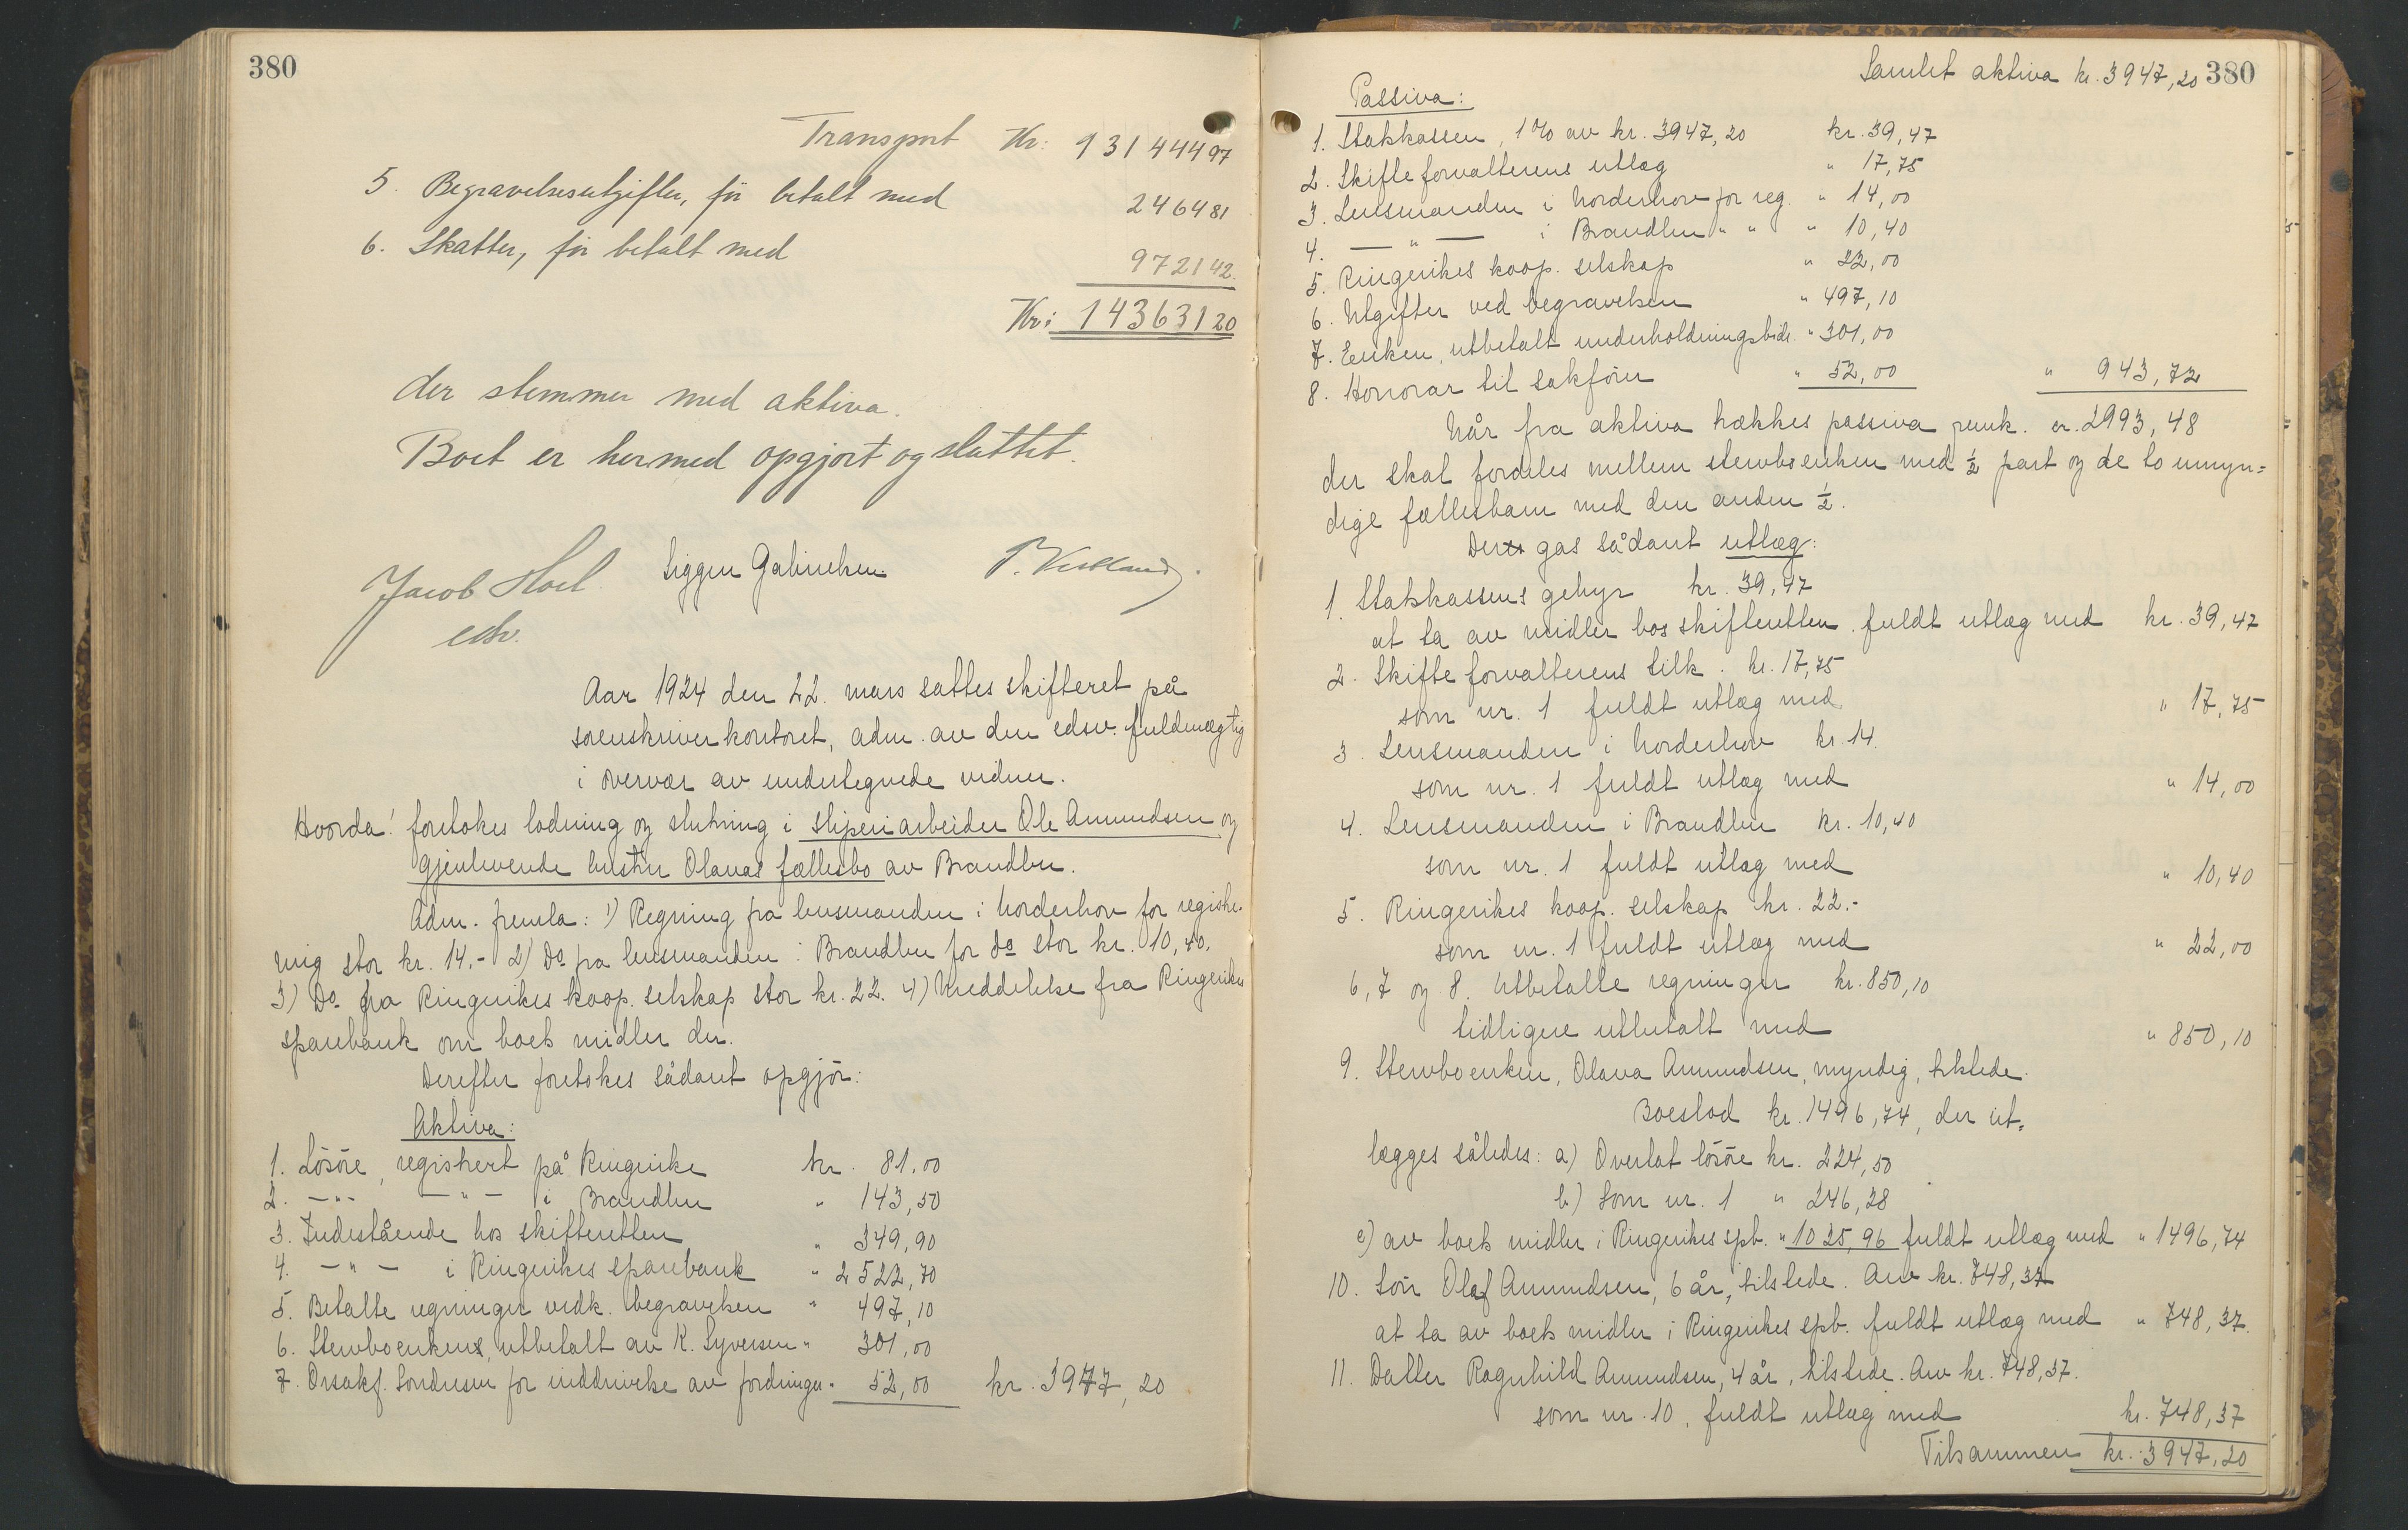 380
Transport Kr: 93144497
5. Begravelsesutgifter, før betalt med 246481
6. Skatter, før betalt med 972142.
Kr: 14363120
der stemmer med aktiva.
Boet er hermed opgjort og sluttet.
Jacob Hoel Siggen Gabrielsen
edsv.
Aar 1924 den 22. mars sattes skifteret på
sorenskriverkontoret, adm. av den edsv. fuldmægtig
i overvær av undertegnede vidner.
Hvorda! foretokes lodning og slutning i sliperiarbeider Ole Amundsen og
gjenlevende hustru Olavas fællesbo av Brandbu.
Adm. fremla: 1) Regning fra lensmanden i Norderhov for registre-
ring stor kr. 14.- 2) Do fra lensmanden i Brandbu for do stor kr. 10,40.
3) Do fra Ringerikes koop. selskap stor kr. 22. 4) Meddelelse fra Ringerikes
sparebank om boets midler der.
Derefter foretokes sådant opgjör:
Aktiva:
1. Lösöre, registrert på Ringerike kr. 81,00
2. -"- -"- i Brandbu " 143,50
3. Indestående hos skifteretten " 349,90
4. -"- i Ringerikes sparebank " 2522,70
5. Betalte regninger vedk. begravelsen " 497,10
6. Stervboenken, utbetalt av K. Syversen " 301,00
7. Orsakf. Sondresen for inddrivelse av fordringer " 52,00 kr. 3947,20
Samlet aktiva kr. 3947,20 380
Passiva:
1. Statskassen, 1% av kr. 3947,20 kr. 39,47
2. Skifteforvalterens utlæg " 17,75
3. Lensmanden i Norderhov for reg. " 14,00
4. -"- i Brandbu " " " 10,40
5. Ringerikes koop. selskap " 22,00
6. Utgifter ved begravelsen " 497,10
7. Enken, utbetalt underholdningsbidr. " 301,00
8. Honorar til sakförer " 52,00 " 943,72
Når fra aktiva trækkes passiva fremk. er. 2993,48
der skal fordeles mellem stervboenken med ½ part og de to umyn=
dige fællesbarn med den anden ½.
Der gas sådant utlæg:
1. Statskassens gebyr kr. 39,47
at ta av midler hos skifteretten. fuldt utlæg med kr. 39,47
2. Skifteforvalterens tilk. kr. 17,75
som nr. 1 fuldt utlæg med " 17,75
3. Lensmanden i Norderhov kr. 14.
som nr. 1 fuldt utlæg med " 14,00
4. Lensmanden i Brandbu kr. 10,40
som nr. 1 fuldt utlæg med " 10,40
5. Ringerikes koop. selskap kr. 22.-
som nr. 1 fuldt utlæg med " 22,00
6, 7 og 8. Utbetalte regninger kr. 850,10
tidligere utbetalt med " 850,10
9. Stervboenken, Olava Amundsen, myndig, tilstede.
Boeslod kr. 1496,74, der ut=
lægges således: a) Overlat lösöre kr. 224,50
b) Som nr. 1 " 246,28
c) av boets midler i Ringerikes spb. " 1025,96 fuldt utlæg med " 1496,74
10. Sön Olaf Amundsen, 6 år, tilstede. Arv kr. 748,37
at ta av boets midler i Ringerikes spb. fuldt utlæg med " 748,37.
11. Datter Ragnhild Amundsen, 4 år, tilstede. Arv kr. 748,37.
som nr. 10, fuldt utlæg med kr. 748,37
Tilsammen kr. 3947,20